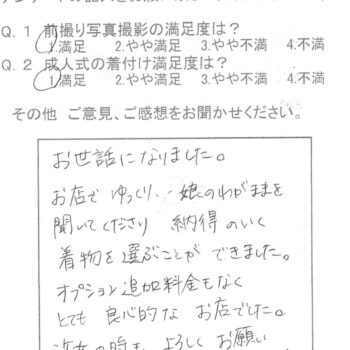 Q.1 前撮り写真撮影の満足度は?
1.満足 2.やや満足 3.やや不満 4.不満
Q.2 成人式の着付け満足度は?
1.満足 2.やや満足 3.やや不満 4.不満
その他 ご意見、ご感想をお聞かせください。
お世話になりました。
お店で ゆっくり、娘のわがままを
聞いてくださり 納得のいく
着物を選ぶことが できました。
オプション追加料金もなく
とても 良心的な お店でした。
の時も よろしく お願い